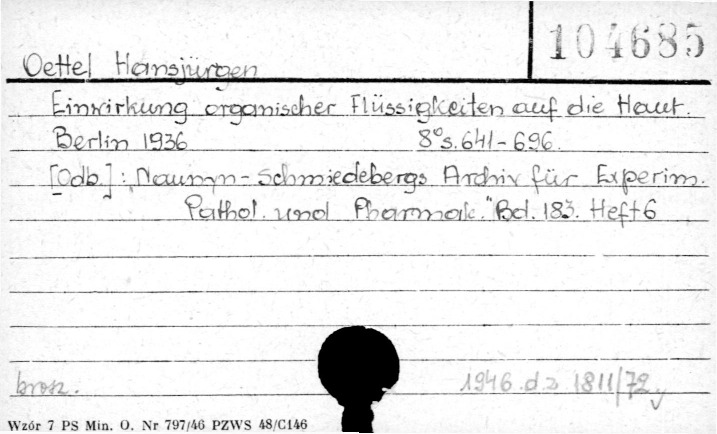 104685
Oettel Hansjürgen
Einwirkung organischer Flüssigkeiten auf die Haut.
Berlin 1936 8° s. 641-696.
[Odb.]: „Naunyn-Schmiedebergs Archiv für Experim.
Pathol. und Pharmak." Bd. 183. Heft 6
brosz. 1946 d.z 1811/72
Wzór 7 PS Min. O. Nr 797/46 PZWS 48/C146